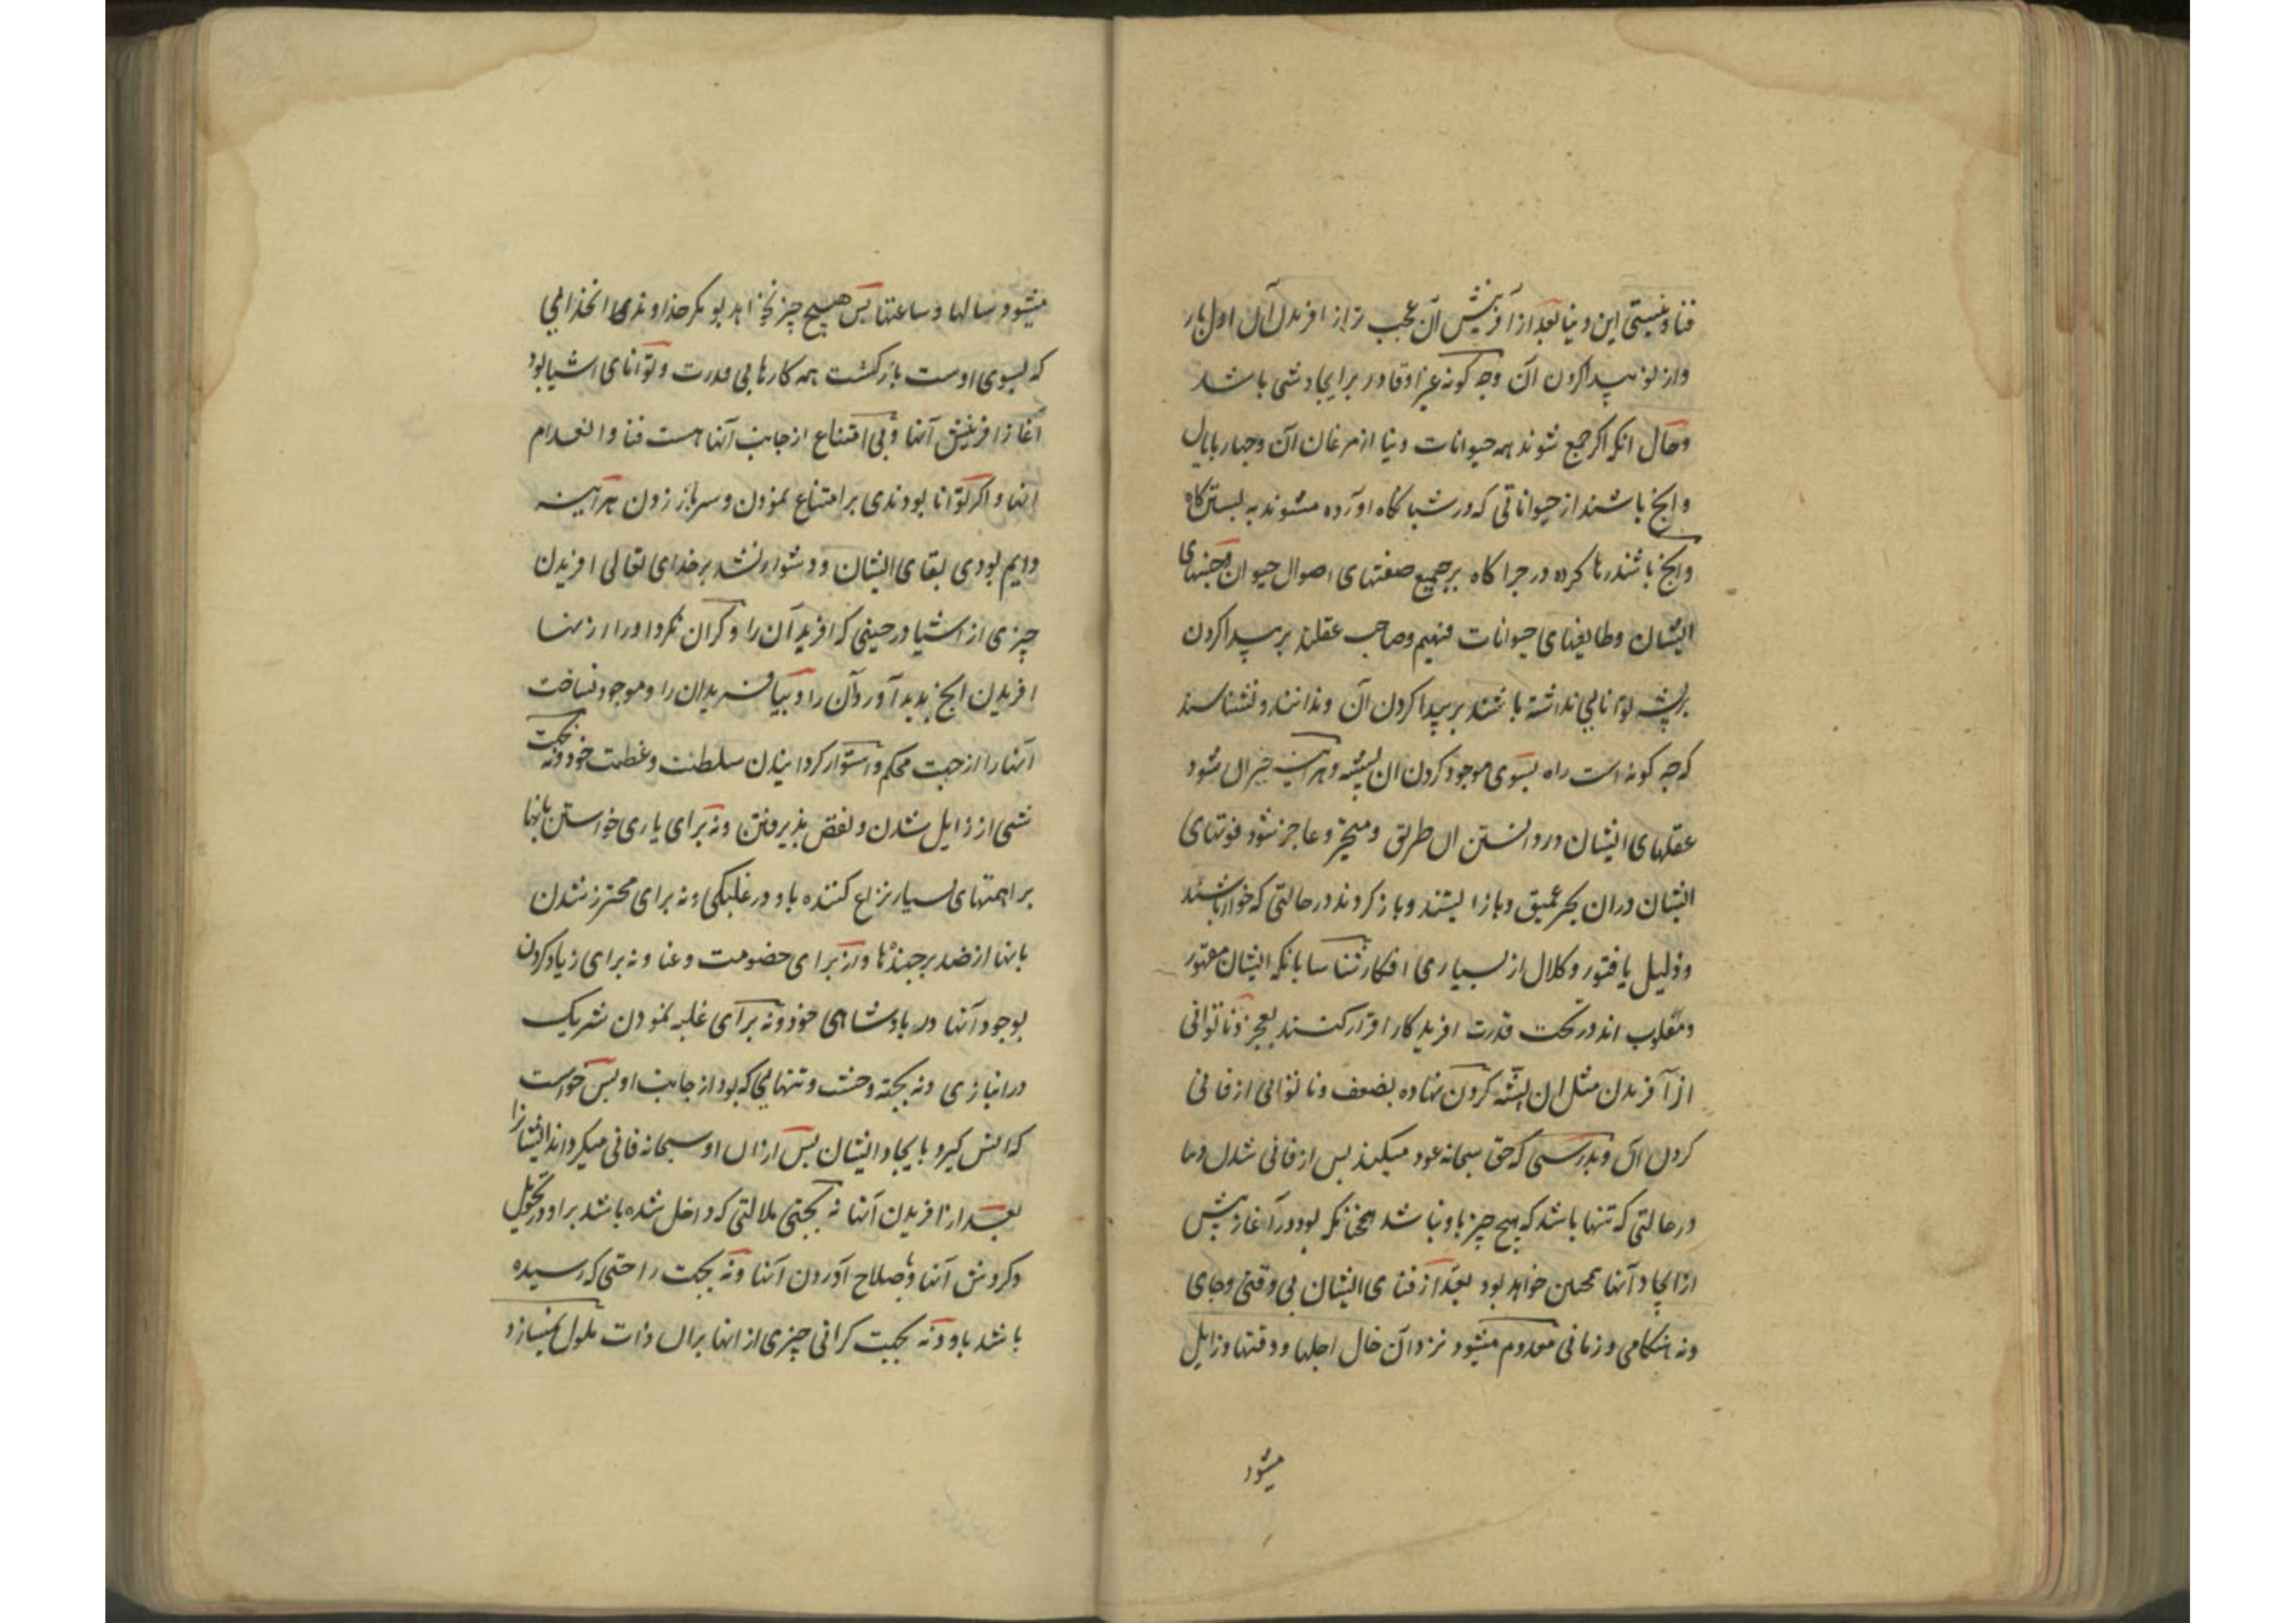 فنا و نیستی این دنیا بعد از آفرینش آن عجب تر از افریدن آن اول بار
و از نو پیدا کردن آن و چه کونه غیر او قادر بر ایجاد شی باشد
و حال انکه اکر جمع شوند همه حیوانات دنیا از مرغان آن و چهار پایان
و انچ باشند از حیواناتی که در شبانکاه اورده میشوند به بستن کاه
و انچ باشند رها کرده در چرا کاه بر جمیع صفتهای اصول حیوان و جنسهای
ایشان و طایفهای حیوانات فهیم و صاحب عقلند بر پیدا کردن
بر پشه توانایی نداشته باشند بر پیدا کردن آن و ندانند و نشناسند
که چه کونه است راه بسوی موجود کردن ان پشه و هر اینه حیران شود
عقلهای ایشان در دانستن ان طریق و متحیر و عاجز شود قوتهای
ایشان در ان بحر عمیق و باز ایستند و باز کردند در حالتی که خوار باشند
و ذلیل یا فتور و کلال از بسیاری افکار شناسا بانکه ایشان مقهور
و مغلوب اند در تحت قدرت افریدکار اقرار کنند بعجز و ناتوانی
از آفریدن مثل ان پشه کردن نهاده بضعف و ناتوانی از فانی
کردن ان و بدرستی که حق سبحانه عود میکند پس از فانی شدن دنیا
در حالتی که تنها باشد که هیچ چیز با او نباشد همچنانکه بود در آغاز پیش
از ایجاد آنها همچنین خواهد بود بعد از فنای ایشان بی وقتی و جای
و نه هنکامی و زمانی معدوم میشود نزد آن حال اجلها و وقتها و زایل
میشود
میشود سالها و ساعتها پس هیچ چیز نخواهد بو مکر خداوندی انخدایی
که بسوی اوست بازکشت همه کارها بی قدرت و توانای اشیا بود
آغاز افرینش آنها و بی امتناع از جانب آنها هست فنا و انعدام
انها و اکر توانا بودندی بر امتناع نمودن و سر باز زدن هر آینه
دایم بودی بقای ایشان و دشوار نشد بر خدای تعالی افریدن
چیزی از اشیا در حینی که افرید آن را و کران نکرد او را از منها
افریدن انچ پدید آورد آن را و بیافریدان را و موجود نساخت
آنها را از جهت محکم و استوار کردانیدن سلطنت و عظمت خود و نه بجهت
نشی از زایل شدن و نقض پذیرفتن و نه برای یاری خواستن بانها
بر اهمتهای بسیار نزاع کننده با و در غلبکی و نه برای محترز شدن
بانها از ضد برجهندها و از برای خصومت و عنا و نه برای زیاد کردن
بوجود آنها در پادشاهی خود و نه برای غلبه نمودن شریک
در انبازی و نه بجهة وحشت و تنهایی که بود از جانب او پس خواست
که انس کیرد بایجاد ایشان پس از ان او سبحانه فانی میکرداند ایشانرا
بعد از افریدن آنها نه بجهتی ملالتی که داخل شده باشد بر او در تحویل
و کردش آنها و بصلاح آوردن آنها و نه بجهت راحتی که رسیده
باشد باو و نه بجهت کرانی چیزی از انها بران ذات ملول نمیسازد